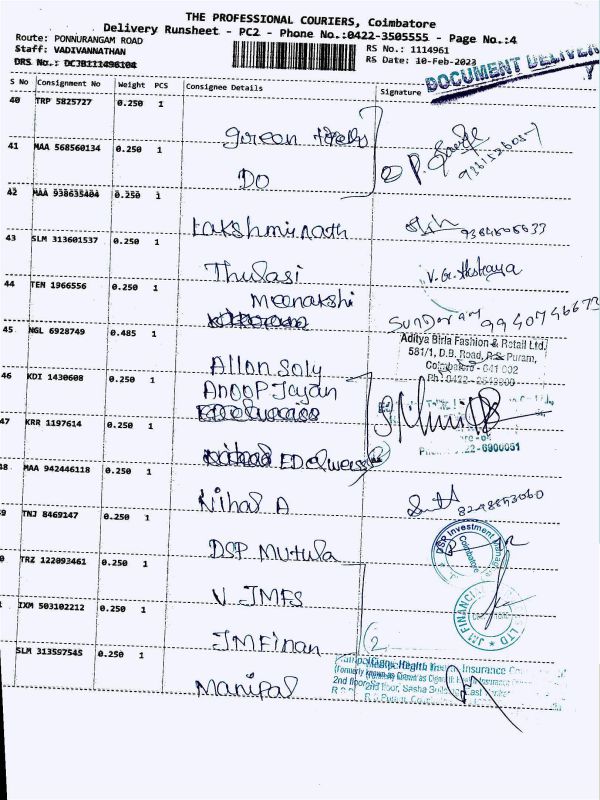 THE PROFESSIONAL COURIERS, Coimbatore
Delivery Runsheet - PC2 - Phone No.:0422-3505555 - Page No.:4
Route: PONNURANGAM ROAD
Staff: VADIVANNATHAN
DRS No.: DCJB111496104
RS No.: 1114961
RS Date: 10-Feb-2023
DOCUMENT DELIVER
S No Consignment No Weight PCS Consignee Details Signature
40 TRP 5825727 0.250 1
green
41 MAA 568560134 0.250 1
DO
P.
42 MAA 938635404 0.250 1
Lakshminath
9384505633
43 SLM 313601537 0.250 1
Thulasi
V. Gr. Akshaya
44 TEN 1966556 0.250 1
Meenakshi
Sundaram 9940746673
45 NGL 6928749 0.485 1
Allon Soly
Aditya Birla Fashion & Retail Ltd.
581/1, D.B. Road, R.S. Puram,
Coimbatore - 641 002
Ph : 0422 - 2543800
46 KDI 1430608 0.250 1
Anoop Jayan
47 KRR 1197614 0.250 1
Edelweiss
22-6900051
48 MAA 942446118 0.250 1
Nihal A
9 TNJ 8469147 0.250 1
DSP Mutula
DSP Investment Manag
Coimbatore
0 TRZ 122093461 0.250 1
V. JMFS
JM FINANCIAL
LTD
1 IXM 503102212 0.250 1
JMFinan
SLM 313597545 0.250 1
Manipal
Health Insurance Com
(formerly known as
2nd floor, Sasha
R.S. Puram,